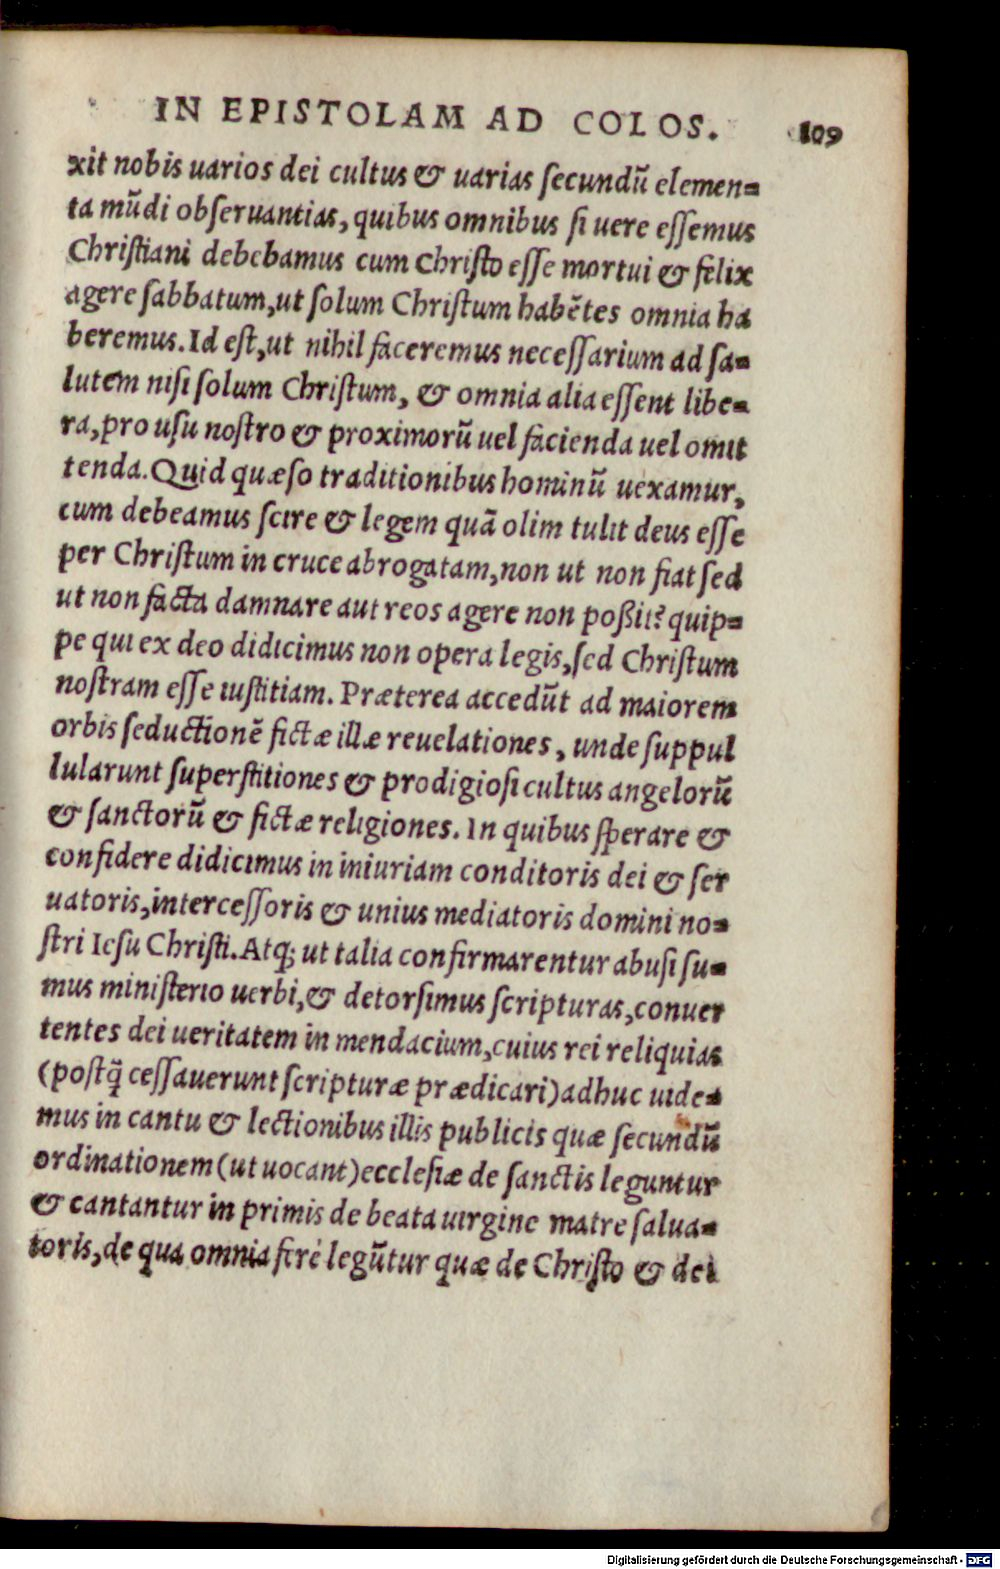 IN EPISTOLAM AD COLOS. 109
xit nobis uarios dei cultus & uarias secundũ elemen=
ta mũdi obseruantias, quibus omnibus si uere essemus
Christiani debebamus cum Christo esse mortui & felix
agere sabbatum, ut solum Christum habẽtes omnia ha
beremus. Id est, ut nihil faceremus necessarium ad sa=
lutem nisi solum Christum, & omnia alia essent libe=
ra, pro usu nostro & proximorũ uel facienda uel omit
tenda. Quid quæso traditionibus hominũ uexamur,
cum debeamus scire & legem quã olim tulit deus esse
per Christum in cruce abrogatam, non ut non fiat sed
ut non facta damnare aut reos agere non poßit? quip=
pe qui ex deo didicimus non opera legis, sed Christum
nostram esse iustitiam. Præterea accedũt ad maiorem
orbis seductionẽ fictæ illæ reuelationes, unde suppul
lularunt superstitiones & prodigiosi cultus angelorũ
& sanctorũ & fictæ religiones. In quibus sperare &
confidere didicimus in iniuriam conditoris dei & ser
uatoris, intercessoris & unius mediatoris domini no=
stri Iesu Christi. Atq; ut talia confirmarentur abusi su=
mus ministerio uerbi, & detorsimus scripturas, conuer
tentes dei ueritatem in mendacium, cuius rei reliquias
(postq̃ cessauerunt scripturæ prædicari) adhuc uide=
mus in cantu & lectionibus illis publicis quæ secundũ
ordinationem (ut uocant) ecclesiæ de sanctis leguntur
& cantantur in primis de beata uirgine matre salua=
toris, de qua omnia ferè legũtur quæ de Christo & dei
Digitalisierung gefördert durch die Deutsche Forschungsgemeinschaft - DFG